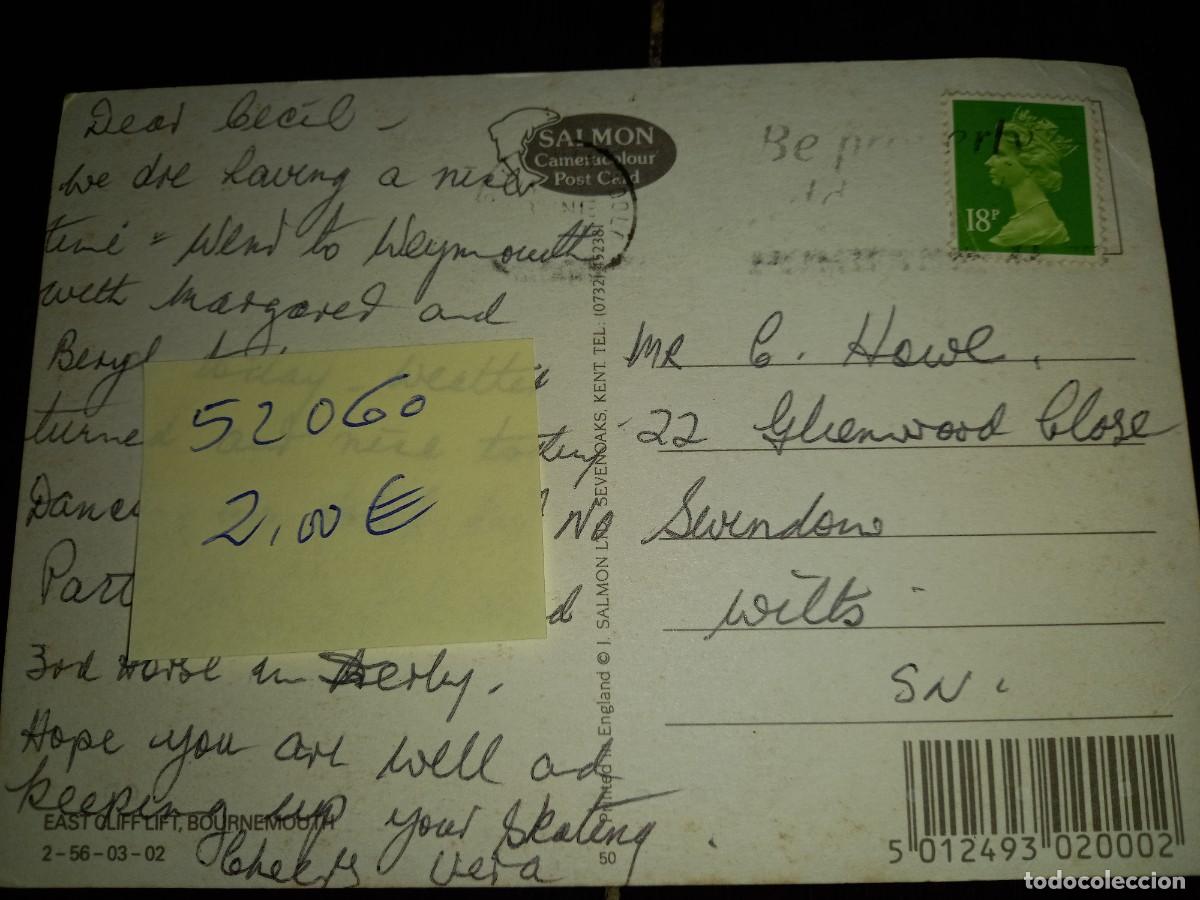 Dear Cecil -
we are having a nice
time - Went to Weymouth
with Margaret and
Beryl today - weather
turned nice
Danc No
Part
3rd Horse in Derby.
Hope you are well and
keeping up your Skating.
Cheers Vera
52060
2,00 €
SALMON
Cameracolour
Post Card
Be properly
18P
MR C. Howe.
22 Glenwood Close
Swindon
Wilts
SN.
Printed in England © J. SALMON LTD SEVENOAKS, KENT. TEL: (0732)
EAST CLIFF LIFT, BOURNEMOUTH
2-56-03-02
50
5 012493 020002
todocoleccion